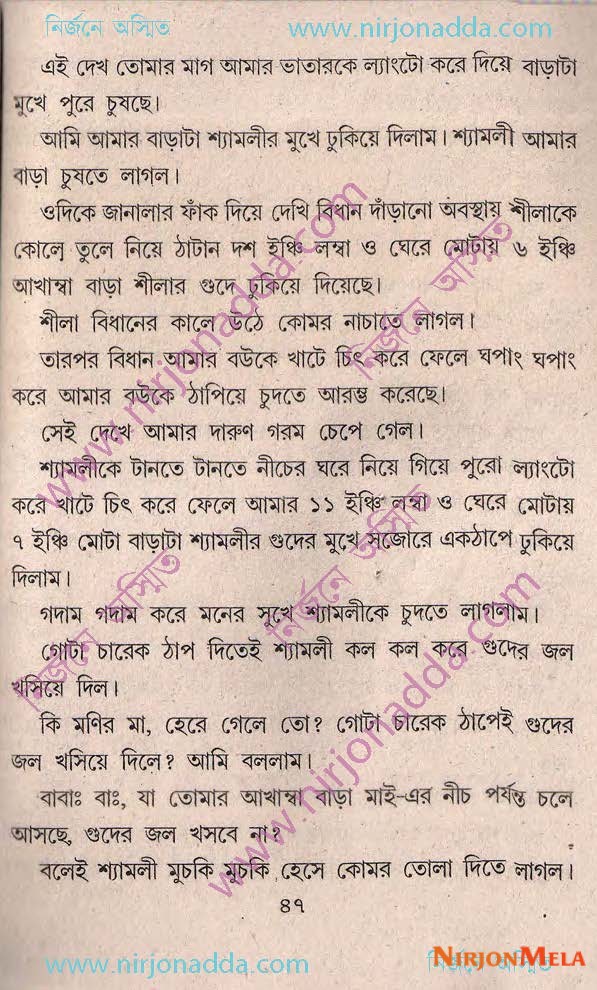 নির্জনে অস্মিত www.nirjonadda.com
এই দেখ তোমার মাগ আমার ভাতারকে ল্যাংটো করে দিয়ে বাড়াটা
মুখে পুরে চুষছে।
আমি আমার বাড়াটা শ্যামলীর মুখে ঢুকিয়ে দিলাম। শ্যামলী আমার
বাড়া চুষতে লাগল।
ওদিকে জানালার ফাঁক দিয়ে দেখি বিধান দাঁড়ানো অবস্থায় শীলাকে
কোলে তুলে নিয়ে ঠাটান দশ ইঞ্চি লম্বা ও ঘেরে মোটায় ৬ ইঞ্চি
আখাম্বা বাড়া শীলার গুদে ঢুকিয়ে দিয়েছে।
শীলা বিধানের কালে উঠে কোমর নাচাতে লাগল।
তারপর বিধান আমার বউকে খাটে চিৎ করে ফেলে ঘপাং ঘপাং
করে আমার বউকে ঠাপিয়ে চুদতে আরম্ভ করেছে।
সেই দেখে আমার দারুণ গরম চেপে গেল।
শ্যামলীকে টানতে টানতে নীচের ঘরে নিয়ে গিয়ে পুরো ল্যাংটো
করে খাটে চিৎ করে ফেলে আমার ১১ ইঞ্চি লম্বা ও ঘেরে মোটায়
৭ ইঞ্চি মোটা বাড়াটা শ্যামলীর গুদের মুখে সজোরে একঠাপে ঢুকিয়ে
দিলাম।
গদাম গদাম করে মনের সুখে শ্যামলীকে চুদতে লাগলাম।
গোটা চারেক ঠাপ দিতেই শ্যামলী কল কল করে গুদের জল
খসিয়ে দিল।
কি মণির মা, হেরে গেলে তো? গোটা চারেক ঠাপেই গুদের
জল খসিয়ে দিলে? আমি বললাম।
বাবাঃ বাঃ, যা তোমার আখাম্বা বাড়া মাই-এর নীচ পর্যন্ত চলে
আসছে, গুদের জল খসবে না?
বলেই শ্যামলী মুচকি মুচকি হেসে কোমর তোলা দিতে লাগল।
৪৭
www.nirjonadda.com নির্জনে অস্মিত
NIRJONMELA
www.nirjonadda.com
নির্জনে অস্মিত
নির্জনে অস্মিত
নির্জনে অস্মিত
www.nirjonadda.com